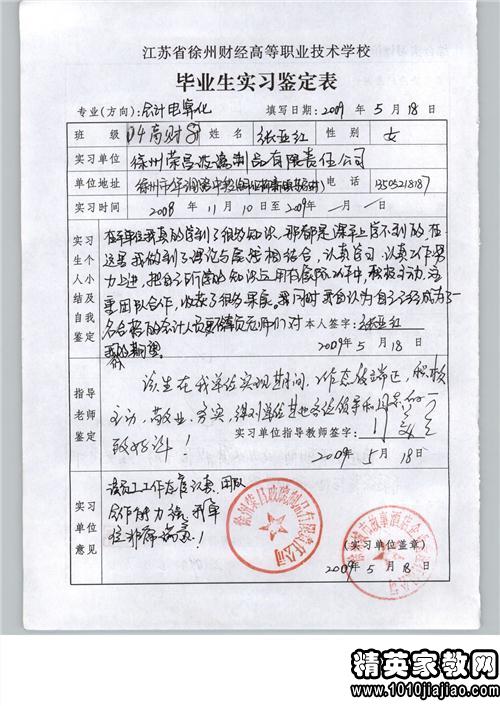 江苏省徐州财经高等职业技术学校
毕业生实习鉴定表
专业(方向):会计电算化 填写日期:2009年 5月 18日
班级 04高财 姓名 张亚红 性别 女
实习单位 徐州荣昌玻璃制品有限责任公司
单位地址 徐州市 电话
实习时间 2008年 11月 10日至 2009年 月 日
实习生个人小结及自我鉴定
在单位我真的学到了很多知识,那都是课本上学不到的,在
这里我做到了理论与实践相结合,认真学习,认真工作,努
力上进,把自己所学的知识运用在实际工作中,积极主动,注
重团队合作,收获了很多果实。我同时我自认为自己已经成为了一
名合格的会计人员 老师们对
我的期望 本人签字:张亚红
2009年 5月 18日
指导老师鉴定
该生在我单位实现期间,工作态度端正,积极
主动,敬业,务实,得到单位其他各位领导和同事的一
致好评!
实习单位指导教师签字:
2009年 5月 18日
实习单位意见
该员工工作态度认真,团队
合作能力强,我单
位非常满意!
(实习单位盖章)
2009年 5月 18日
徐州荣昌玻璃制品有限责任公司
精英家教网
www.1010jiajiao.com